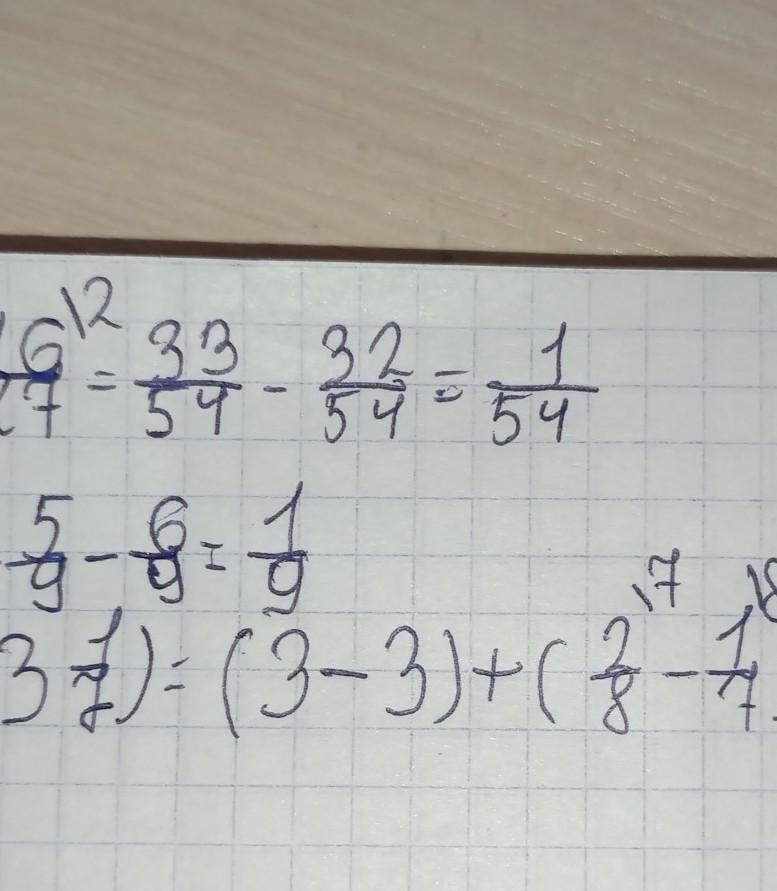 16/27 \2 = 33/54 - 32/54 = 1/54
5/9 - 6/9 = 1/9
3 1/7) = (3 - 3) + (2/8 \7 - 1/7 \8